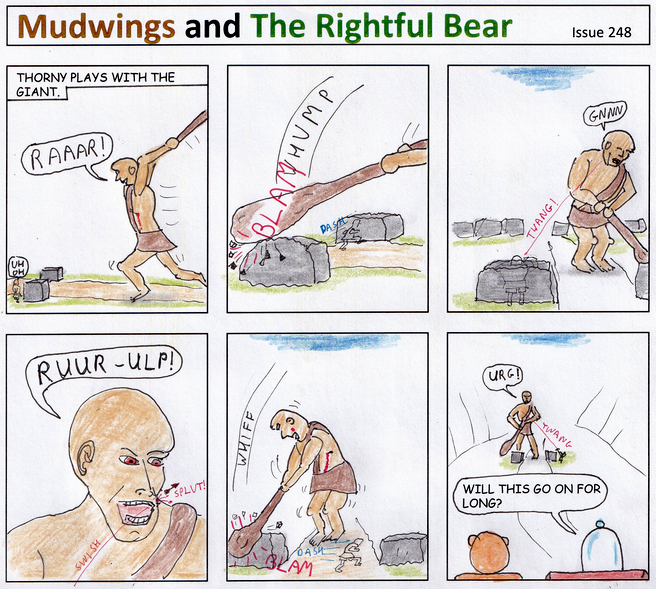 Mudwings and The Rightful Bear
Issue 248
THORNY PLAYS WITH THE
GIANT.
RAAAR!
UH
OH
WHUMP
BLAM
DASH
GNNN
TWANG!
RUUR-ULP!
SPLUT!
SWISH
WHIFF
DASH
BLAM
URG!
TWANG
WILL THIS GO ON FOR
LONG?